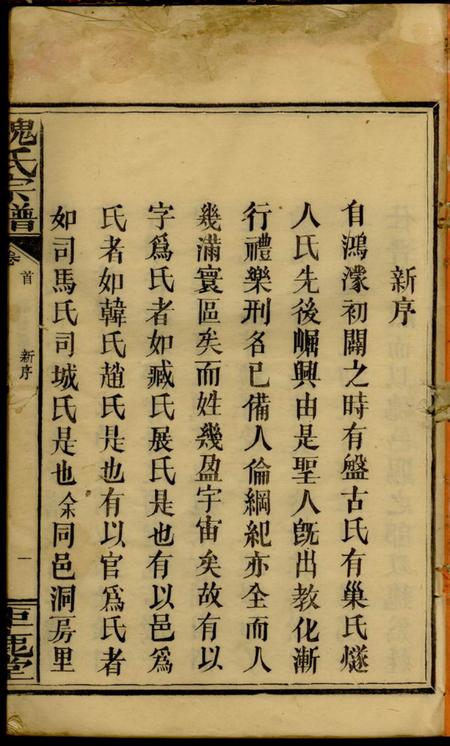 新序
自鴻濛初闢之時有盤古氏有巢氏燧
人氏先後崛興由是聖人旣出敎化漸
行禮樂刑名已備人倫綱紀亦全而人
幾滿寰區矣而姓幾盈宇宙矣故有以
字爲氏者如臧氏展氏是也有以邑爲
氏者如韓氏趙氏是也有以官爲氏者
如司馬氏司城氏是也余同邑洞房里
魏氏宗譜
卷首
新序
一
鉅鹿堂